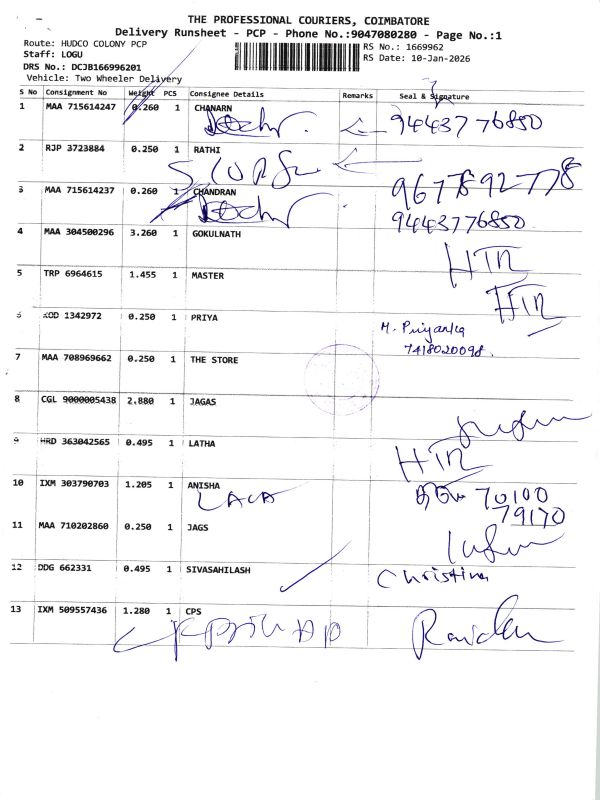 THE PROFESSIONAL COURIERS, COIMBATORE
Delivery Runsheet - PCP - Phone No.:9047080280 - Page No.:1
Route: HUDCO COLONY PCP
RS No.: 1669962
Staff: LOGU
RS Date: 10-Jan-2026
DRS No.: DCJB166996201
Vehicle: Two Wheeler Delivery
S No Consignment No Weight PCS Consignee Details Remarks Seal & Signature
1 MAA 715614247 0.260 1 CHANARN
94437 76850
2 RJP 3723884 0.250 1 RATHI
9677892778
3 MAA 715614237 0.260 1 CHANDRAN
94437 76850
4 MAA 304500296 3.260 1 GOKULNATH
5 TRP 6964615 1.455 1 MASTER
KOD 1342972 0.250 1 PRIYA
M. Priyanka
7418020098
7 MAA 708969662 0.250 1 THE STORE
8 CGL 9000005438 2.880 1 JAGAS
9 HRD 363042565 0.495 1 LATHA
10 IXM 303790703 1.205 1 ANISHA
70100
79170
11 MAA 710202860 0.250 1 JAGS
12 DDG 662331 0.495 1 SIVASAHILASH
Christina
13 IXM 509557436 1.280 1 CPS